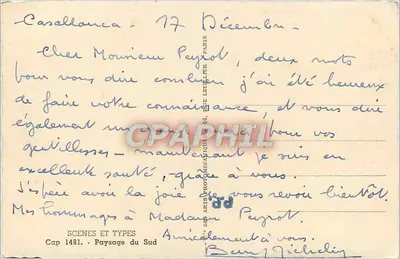 Casablanca - 17 Décembre -
Cher Monsieur Peyrot, deux mots
pour vous dire combien j'ai été heureux
de faire votre connaissance, et vous dire
également un grand merci pour vos
gentillesses - maintenant je suis en
excellente santé, grâce à vous.
J'espère avoir la joie de vous revoir bientôt.
Mes hommages à Madame Peyrot.
Amicalement à vous.
SCENES ET TYPES
Cap 1481. - Paysage du Sud
CPAPHIL